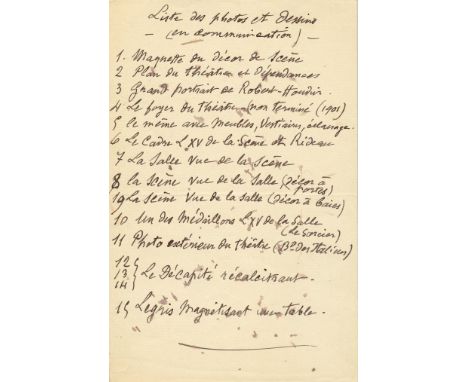 Liste des photos et dessins
— (en communication) —
1. Maquette du décor de scène
2 Plan du théâtre et dépendances
3 Grand portrait de Robert-Houdin.
4 Le foyer du théâtre (non terminé (1901)
5 le même avec meubles, Vestiaire, éclairage.
6 Le Cadre L XV de la Scène et Rideau
7 La Salle vue de la scène
8 la scène vue de la salle (décor à portes)
9 La scène vue de la salle (décor à baies)
10 un des Médaillons L XV de la Salle
(Le Sorcier)
11 Photo extérieur du théâtre (Bd des Italiens)
12
13 Le Décapité récalcitrant.
14
15 Legris Magnétisant une table.